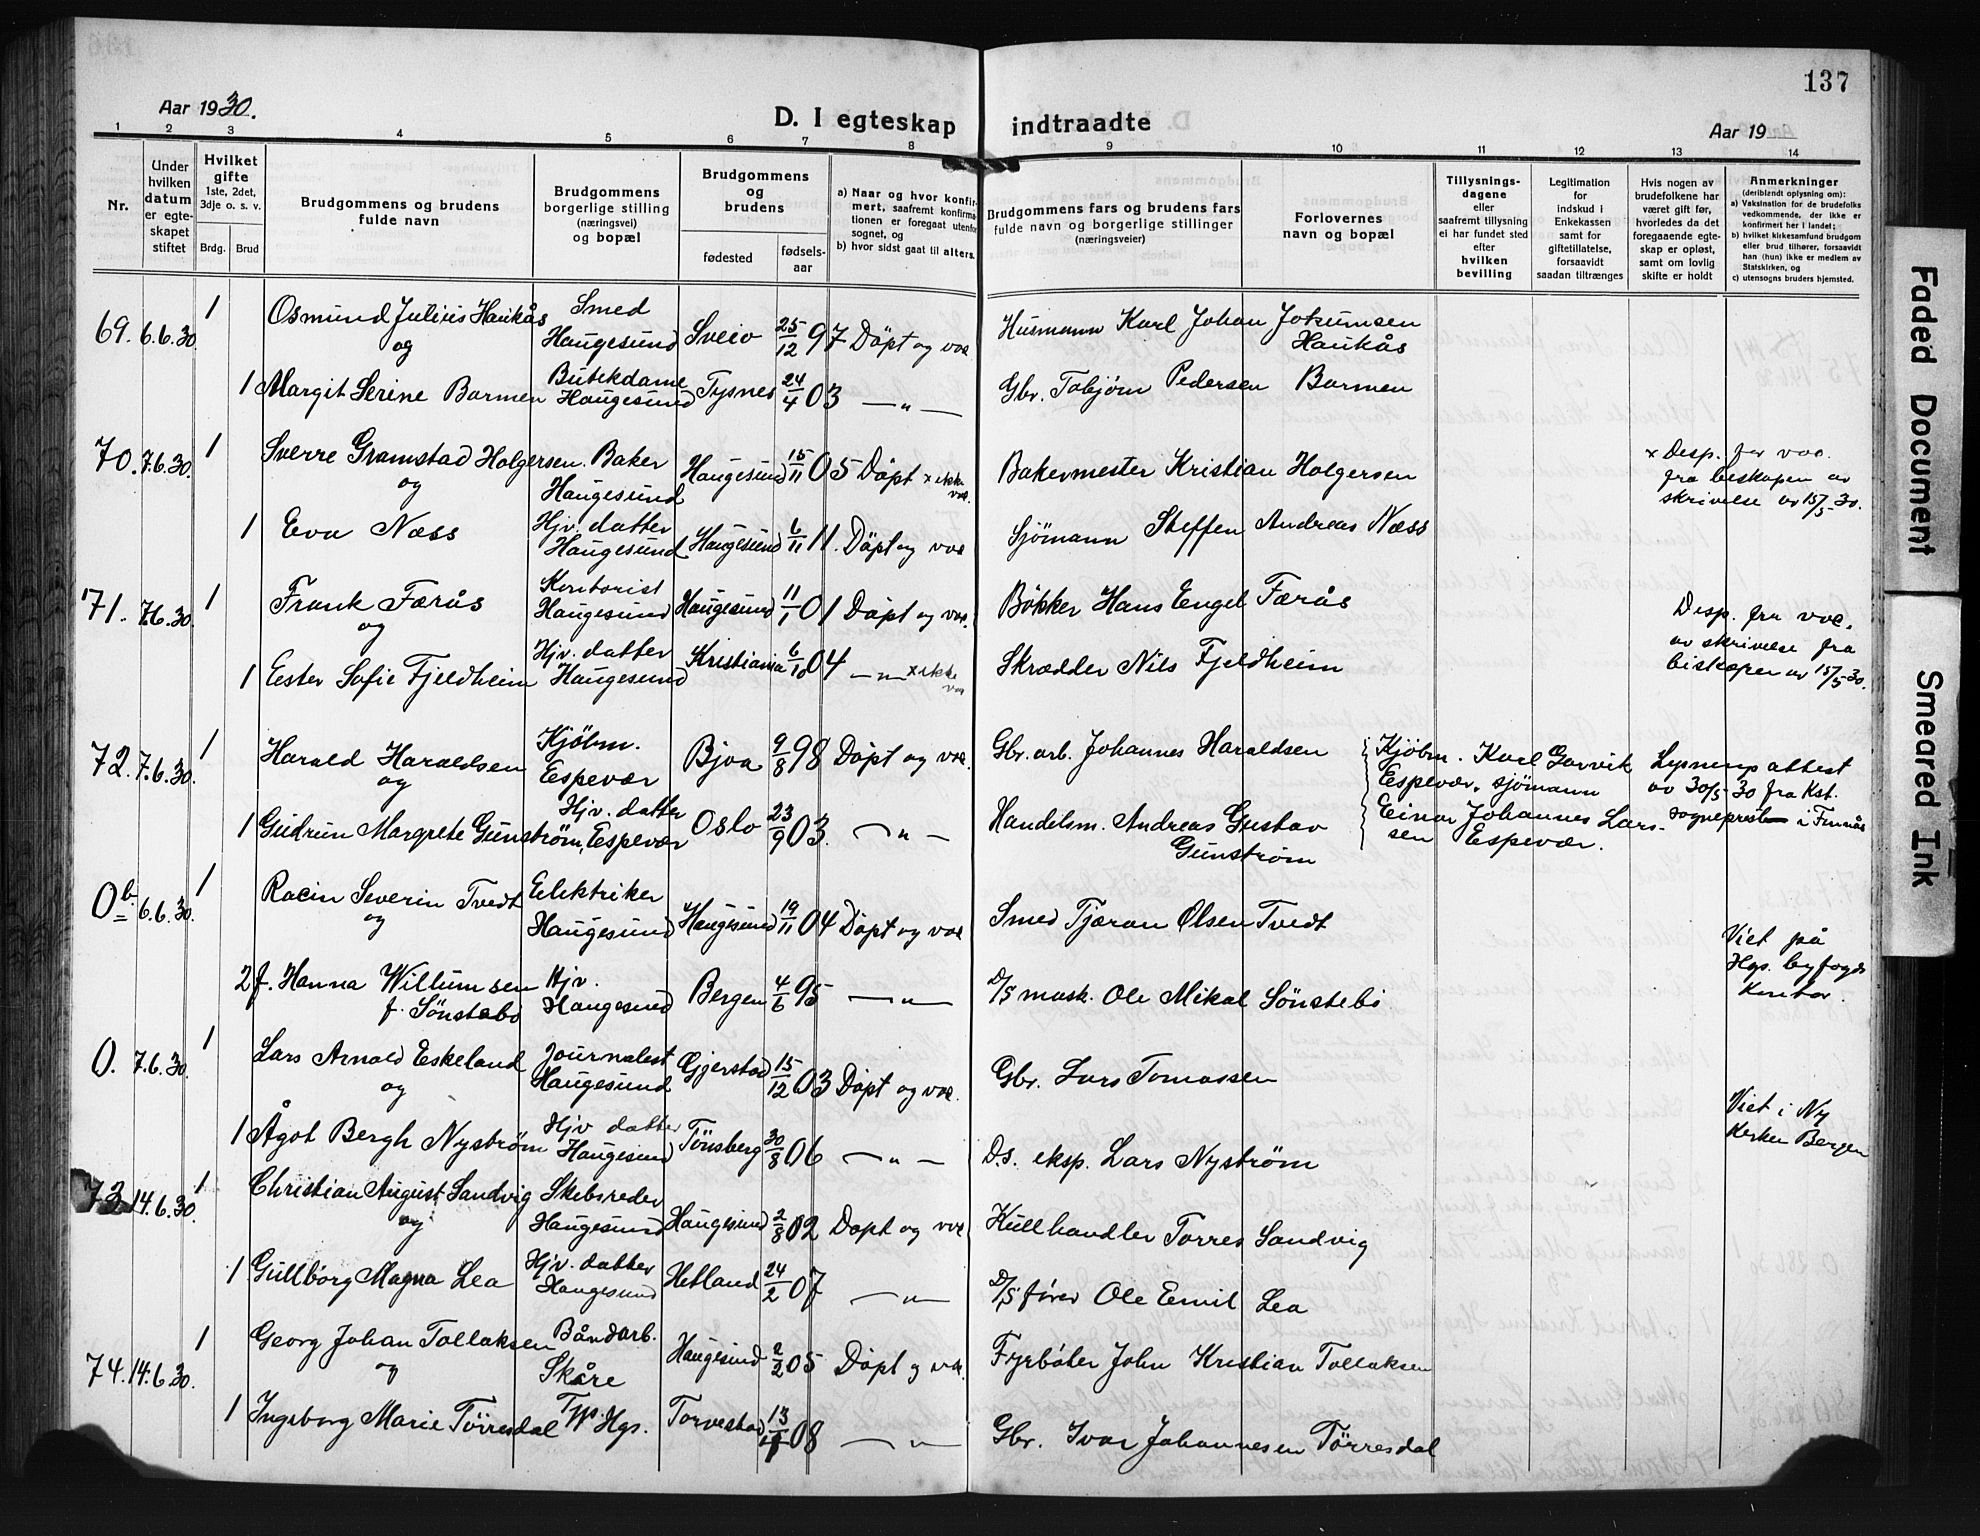 137
Aar 1930.
D. I egteskap indtraadte
Aar 19
1 2 3 4 5 6 7 8 9 10 11 12 13 14
Nr.
Under hvilken datum er egteskapet stiftet
Hvilket gifte 1ste, 2det, 3dje o. s. v.
Brdg. Brud
Brudgommens og brudens fulde navn
Brudgommens borgerlige stilling (næringsvei) og bopæl
Brudgommens og brudens
fødested
fødselsaar
a) Naar og hvor konfirmert, saafremt konfirmationen er foregaat utenfor sognet, og
b) hvor sidst gaat til alters.
Brudgommens fars og brudens fars fulde navn og borgerlige stillinger (næringsveier)
Forlovernes navn og bopæl
Tillysningsdagene eller saafremt tillysning ei har fundet sted efter hvilken bevilling
Legitimation for indskud i Enkekassen samt for giftetillatelse, forsaavidt saadan tiltrænges
Hvis nogen av brudefolkene har været gift før, hvorledes da det foregaaende egteskap er opløst, samt om lovlig skifte er holdt
Anmerkninger (deriblandt oplysning om):
a) Vaksination for de brudefolks vedkommende, der ikke er konfirmert her i landet;
b) hvilket kirkesamfund brudgom eller brud tilhører, forsaavidt han (hun) ikke er medlem av Statskirken, og
c) utensogns bruders hjemsted.
69. 6.6.30. 1 Osmund Julius Haukås og Smed Haugesund Sveio 25/12 97 Döpt og vac Husmann Karl Johan Jokumsen Haukås
1 Margit Serine Barmen Butikdame Haugesund Tysnes 24/4 03 — " — Gbr. Tobjørn Pedersen Barmen
70. 7.6.30. 1 Sverre Gramstad Holgersen og Baker Haugesund Haugesund 15/11 05 Döpt x ikke vac. Bakermester Kristian Holgersen x Desp. for vac. fra biskopen av skrivelse av 15/5-30.
1 Eva Næss Hjv. datter Haugesund Haugesund 6/11 11. Döpt og vac Sjømann Steffen Andreas Næss
71. 7.6.30. 1 Frank Færås og Kontorist Haugesund Haugesund 11/1 01 Döpt og vac. Bökker Hans Engel Færås Desp. fra vac. av skrivelse fra biskopen av 15/5-30.
1 Ester Sofie Fjeldheim Hjv. datter Haugesund Kristiania 6/10 04 — " — x ikke vac Skrædder Nils Fjeldheim
72. 7.6.30. 1 Harald Haraldsen og Kjöbm. Espevær Bjoa 9/8 98 Döpt og vac. Gbr. arb. Johannes Haraldsen Kjöbm. Karl Garvik Espevær, sjömann Lysnings attest av 30/5-30 fra Kst. sogneprest i Finnås
1 Gudrun Margrete Gunström, Hjv. datter Espevær Oslo 23/9 03. — " — Handelsm. Andreas Gustav Gunström Einar Johannes Larssen Espevær.
0 b. 6.6.30. 1 Racin Severin Tvedt og Elektriker Haugesund Haugesund 19/11 04 Döpt og vac Smed Tjæran Olsen Tvedt Viet på Hgs. byfogds kontor.
2 f. Hanna Willumsen f. Sönstabö Hjv. Haugesund Bergen 4/6 95 — " — D/S mask. Ole Mikal Sönstebö
0. 7.6.30. 1 Lars Arnold Eskeland og Journalist Haugesund Gjerstad 15/12 03 Döpt og vac. Gbr. Lars Tomassen Viet i Ny Kirken Bergen
1 Ågot Bergh Nyström Hjv datter Haugesund Tönsberg 30/8 06 — " — D.s. eksp. Lars Nyström
73 14.6.30. 1 Christian August Sandvig og Skibsreder Haugesund Haugesund 2/8 02 Döpt og vac Kullhandler Torres Sandvig
1 Gullborg Magna Lea Hjv. datter Haugesund Hetland 24/2 07 — " — D/S fører Ole Emil Lea
74. 14.6.30. 1 Georg Johan Tollaksen og Båndarb. Skåre Haugesund 2/2 05 Döpt og vac. Fyrböter John Kristian Tollaksen
1 Ingeborg Marie Törresdal Hgs. Torvestad 08 — " — Gbr. Ivar Johannesen Törresdal
Faded Document
Smeared Ink